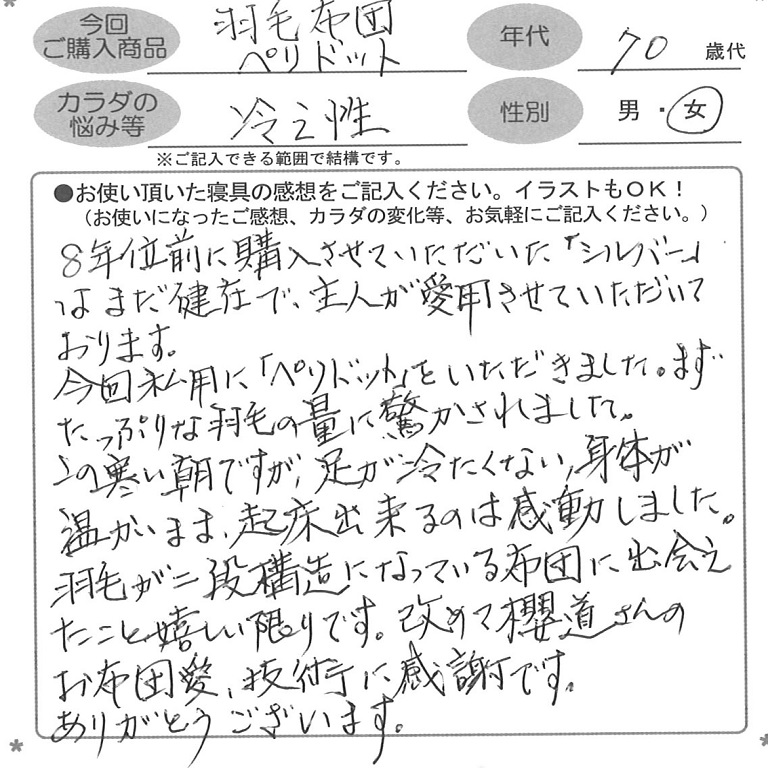 今回
ご購入商品
羽毛布団
ペリドット
年代
70 歳代
カラダの
悩み等
冷え性
性別
男・女
※ご記入できる範囲で結構です。
●お使い頂いた寝具の感想をご記入ください。イラストもOK！
（お使いになったご感想、カラダの変化等、お気軽にご記入ください。）
8年位前に購入させていただいた「シルバー」
はまだ健在で、主人が愛用させていただいて
おります。
今回私用に「ペリドット」をいただきました。まず
たっぷりな羽毛の量に驚かされました。
この寒い朝ですが、足が冷たくない、身体が
温かいまま、起床出来るのは感動しました。
羽毛が二段構造になっている布団に出会え
たこと嬉しい限りです。改めて櫻道さんの
お布団愛、技術に感謝です。
ありがとうございます。